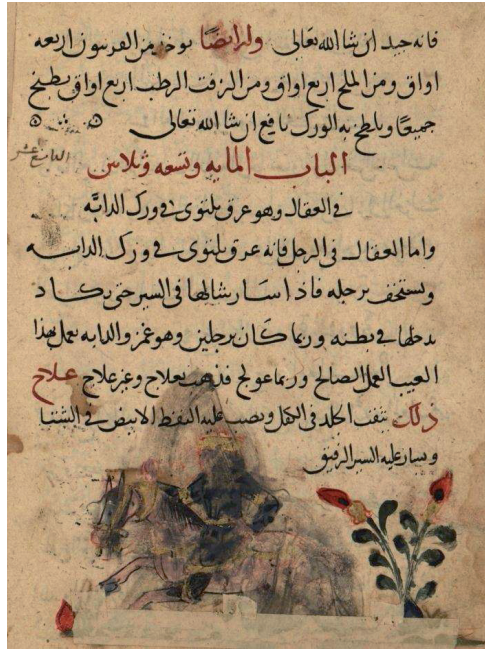 فانه جيد ان شا الله تعالى وله ايضا يوخذ من الفرسون اربعه
اواق ومن الملح اربع اواق ومن الزفت الرطب اربع اواق يطبخ
جميعا ويلطخ به الورك نافع ان شا الله تعالى
الباب المايه وتسعه وثلاثين
في العقال وهو عرق يلتوى في ورك الدابه
واما العقال في الرجل فانه عرق يلتوى في ورك الدابه
ويستخف برجله فاذا سار شالها في السير حتى يكاد
يدخلها في بطنه وربما كان برجلين وهو غمز والدابه يعمل بهذا
العيب العمل الصالح وربما عولج فذهب بعلاج وغير علاج علاج
ذلك تنقب الجلد في الكفل ويصب عليه النفط الابيض في الشتا
ويسار عليه السير الرفيق